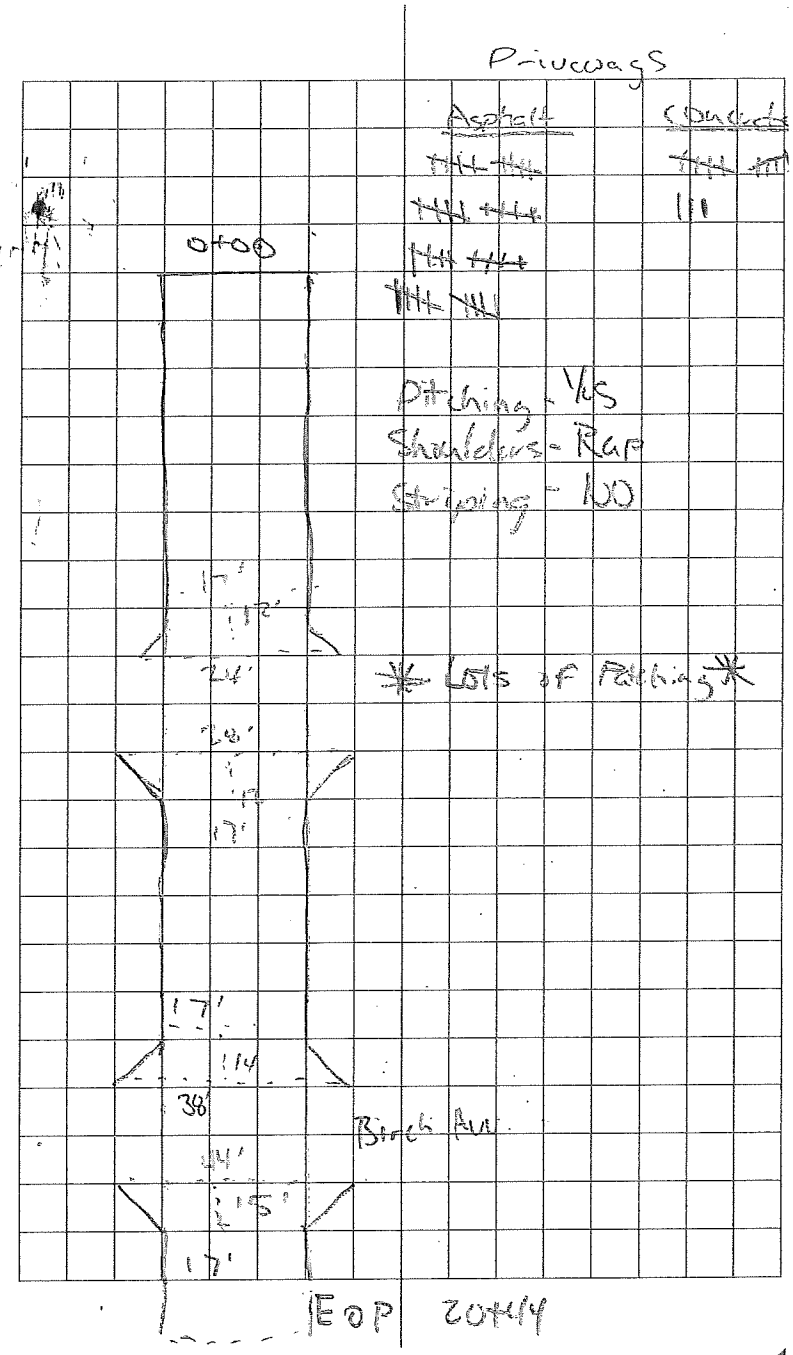 Driveways
Asphalt Concrete
0+00
Pitching - Yes
Shoulders - Rap
Striping - NO
17'
12'
24'
* Lots of Patching *
28'
12
17'
17'
14
38'
Birch Ave
44'
15'
17'
EOP 20+44